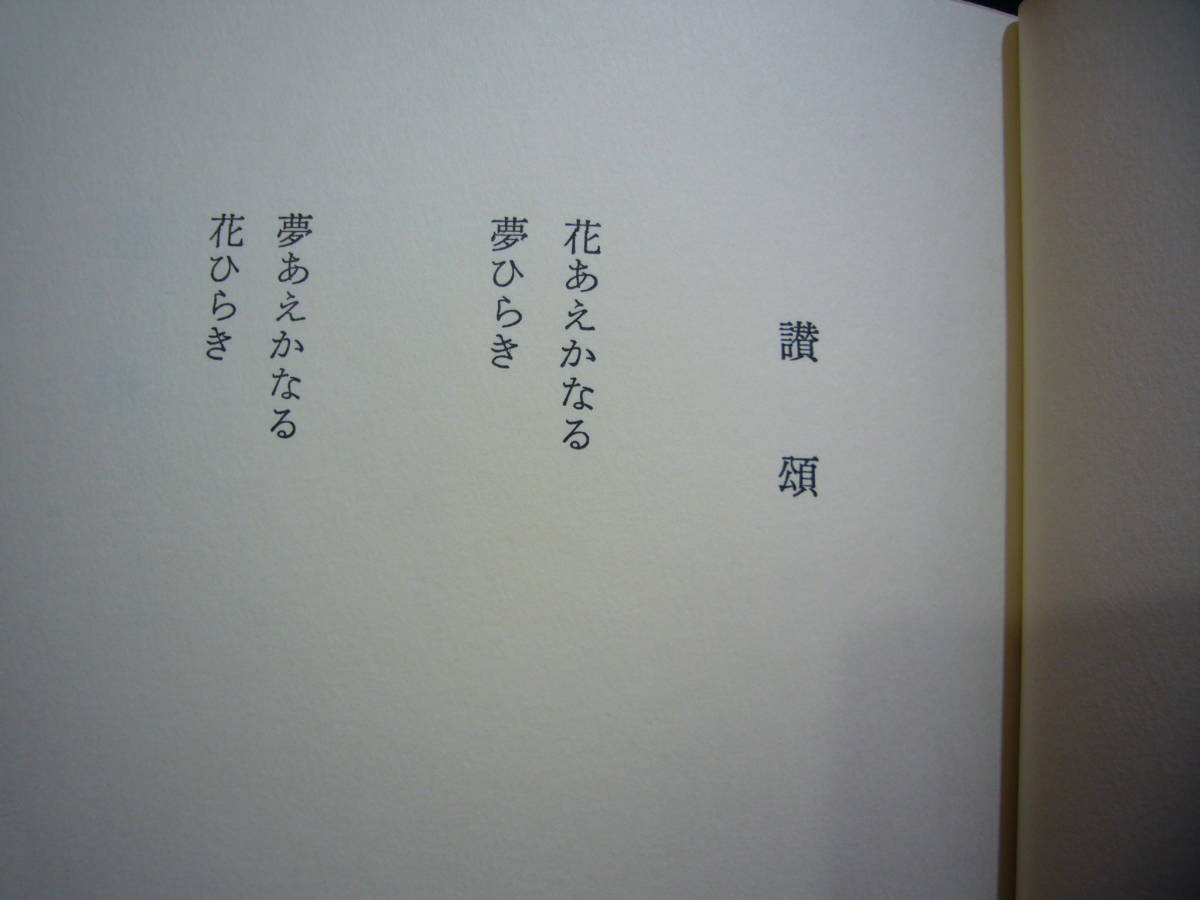 讃頌
花あえかなる
夢ひらき
夢あえかなる
花ひらき